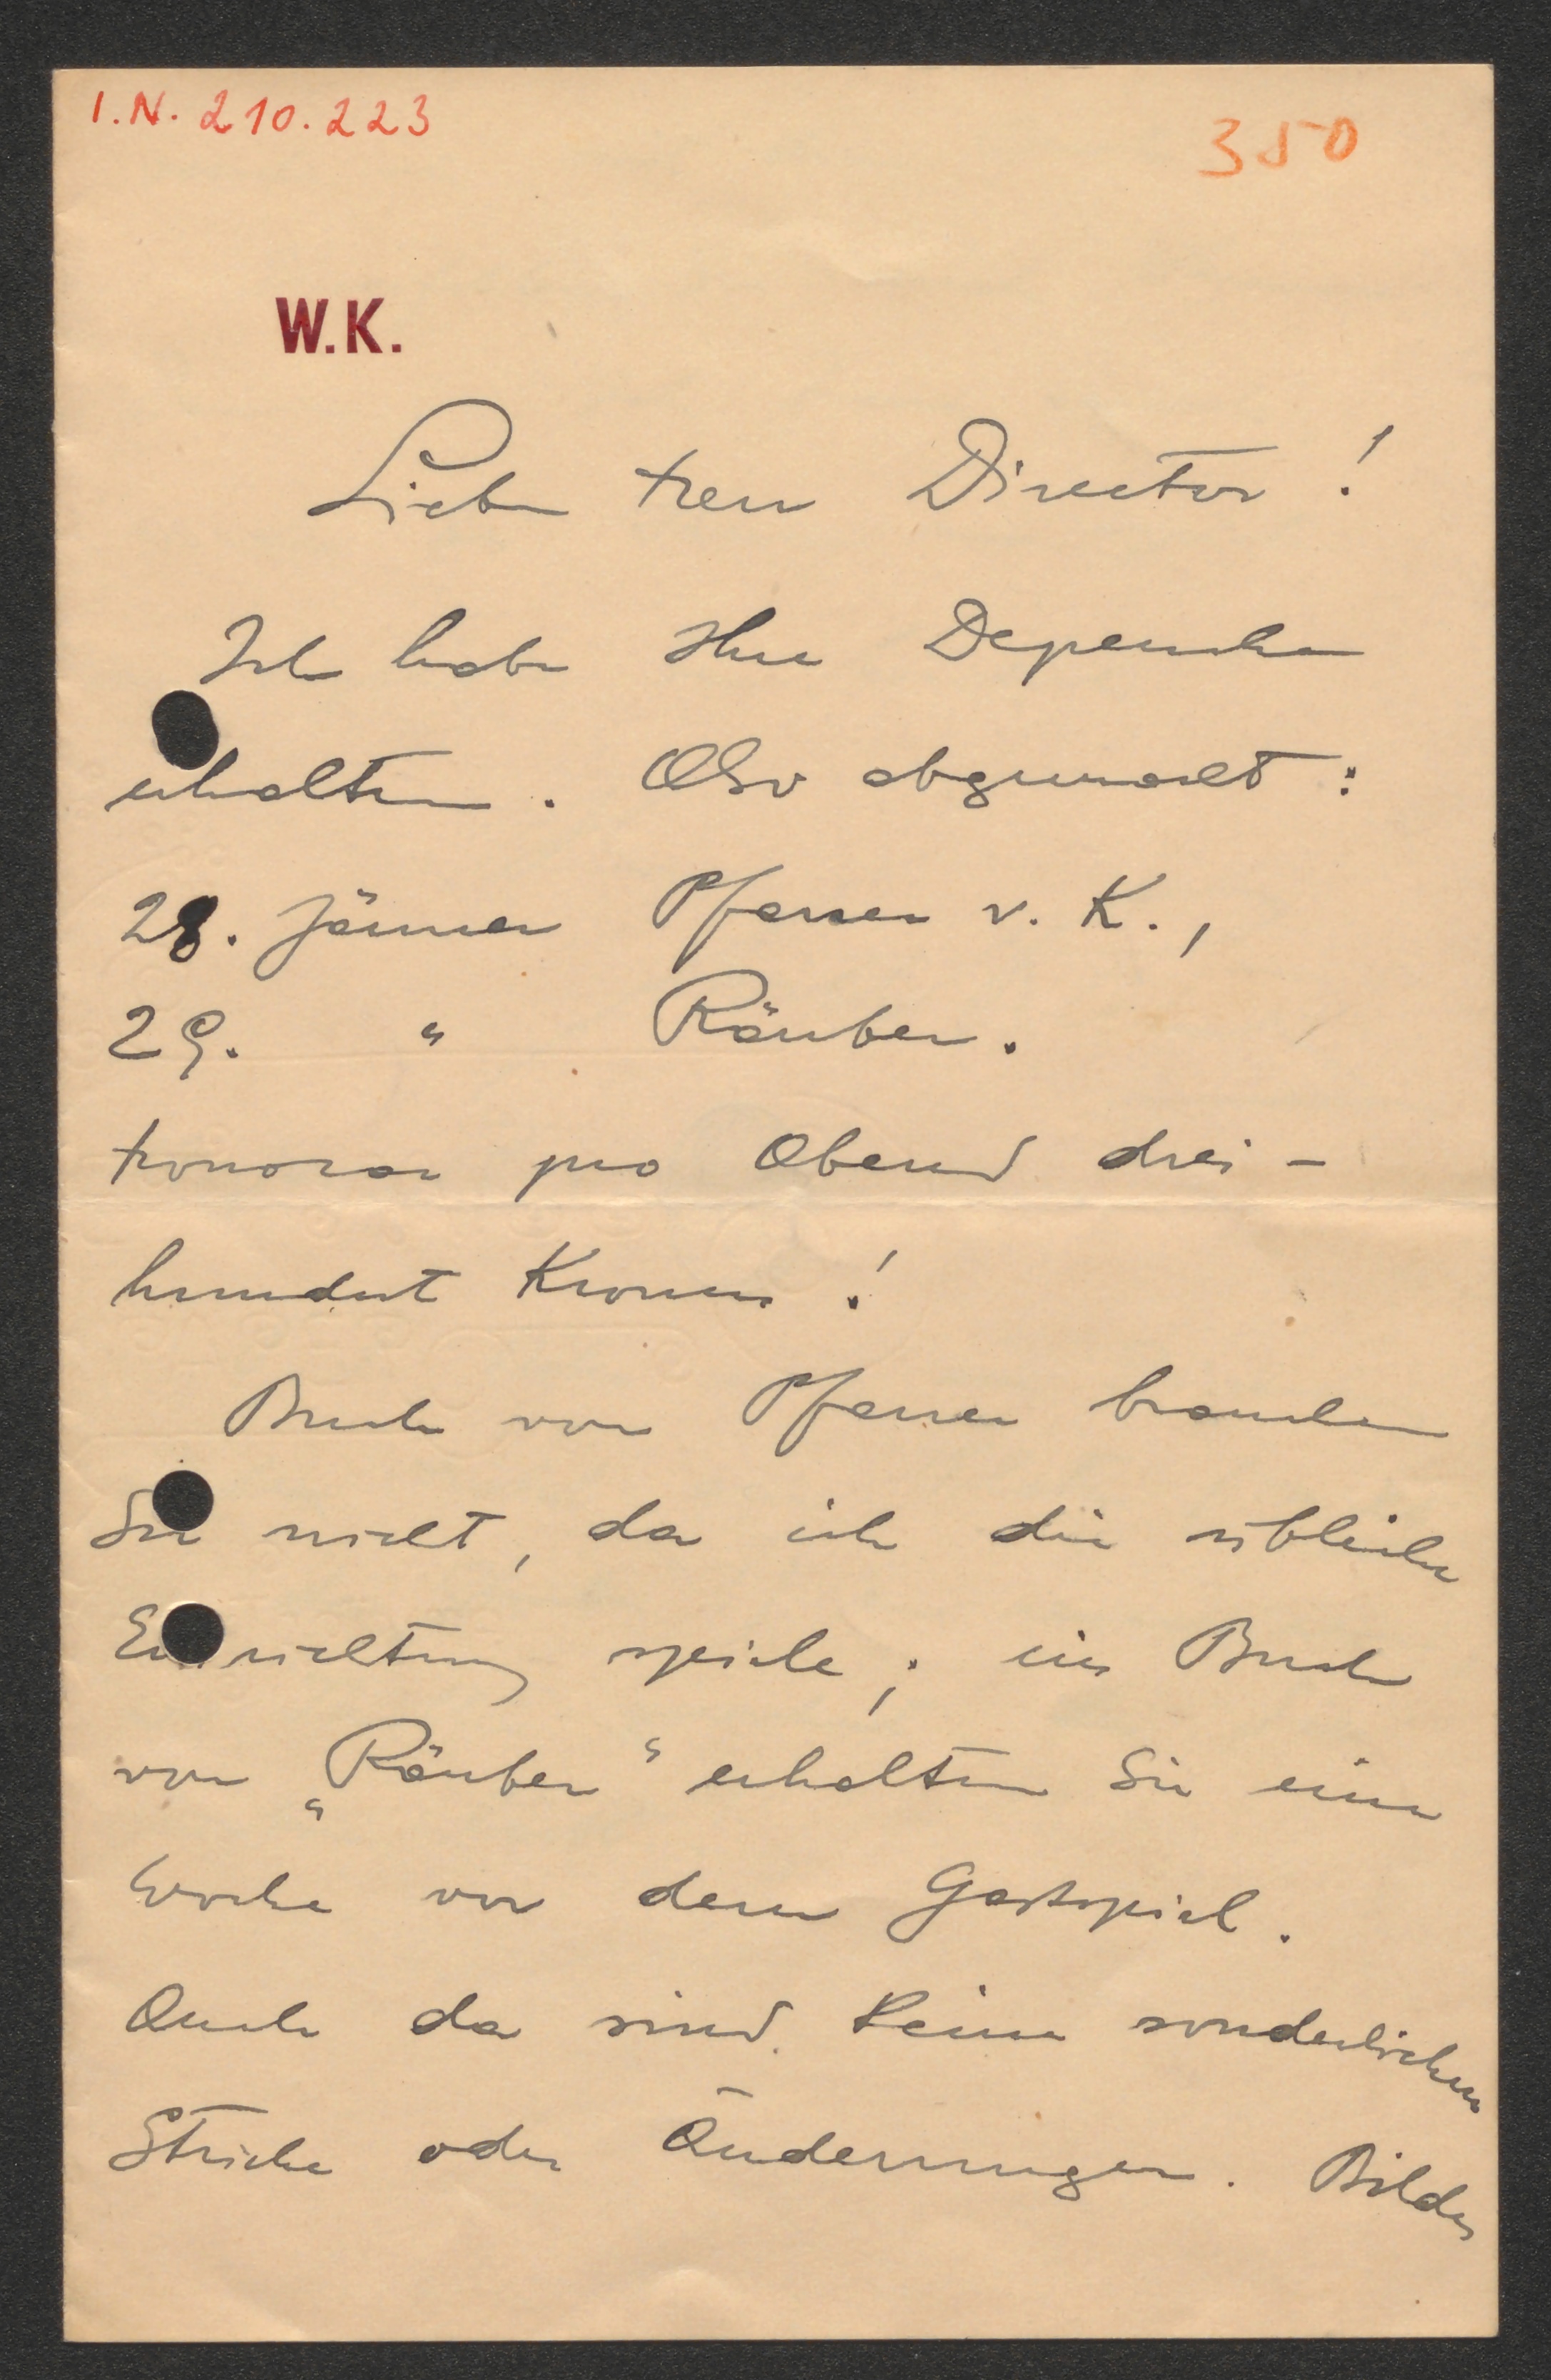 I.N. 210.223
350
W.K.
Lieber Herr Director!
Ich habe Ihre Depesche
erhalten. Also abgemacht:
28. Jänner Pfarrer v. K.,
29. " Räuber.
Honorar pro Abend drei-
hundert Kronen!
Buch von Pfarrer brauchen
Sie nicht, da ich die übliche
Einrichtung spiele; ein Buch
von „Räuber“ erhalten Sie eine
Woche vor dem Gastspiel.
Auch da sind keine sonderlichen
Striche oder Änderungen. Bilder